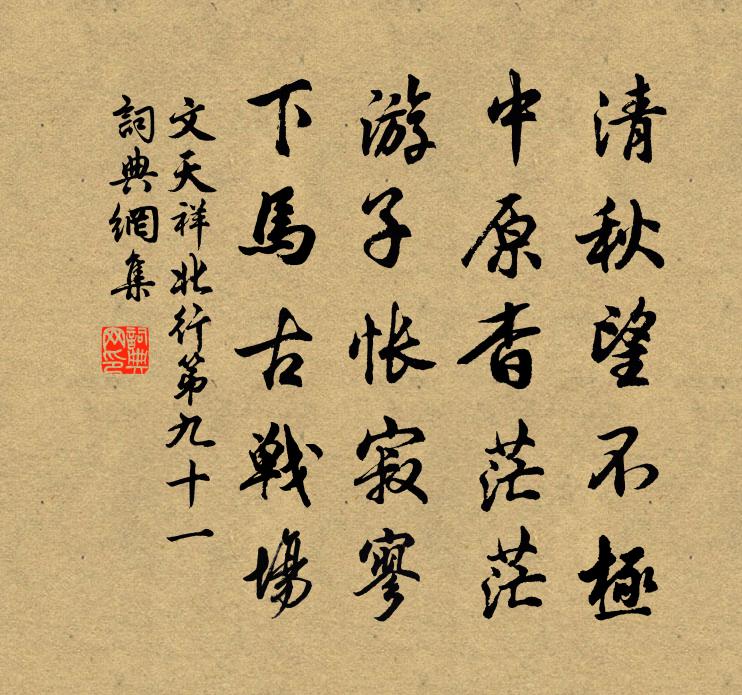 清秋望不極
中原杳茫茫
游子悵寂寥
下馬古戰場
文天祥北行第九十一
詞典網集
詞典網印